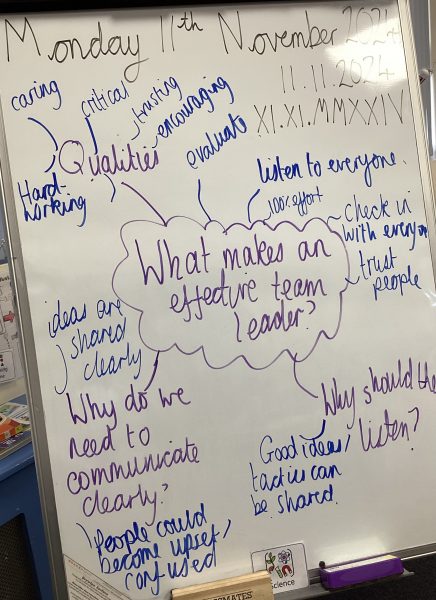 Monday 11th November 2024
11.11.2024
XI.XI.MMXXIV
caring
critical
trusting
encouraging
Qualities
Hard-
working
evaluate
listen to everyone.
100% effort
check in
with everyon
trust
people
What makes an
effective team
leader?
ideas are
shared
clearly
Why do we
need to
communicate
clearly?
People could
become upset/
confused
Why should the
listen?
Good ideas/
tactics can
be shared.
Science